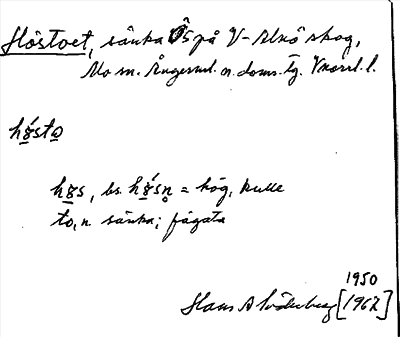 Höstoet, sänka Ös på V-Alnö skog,
Mo sn. Ångerml. n. doms. tg. Vnorrl. l.
hǿsto
høs, bs. hǿsn̥ = hög, kulle
to, n. sänka; fågata
1950
Hans A Söderberg [1967]